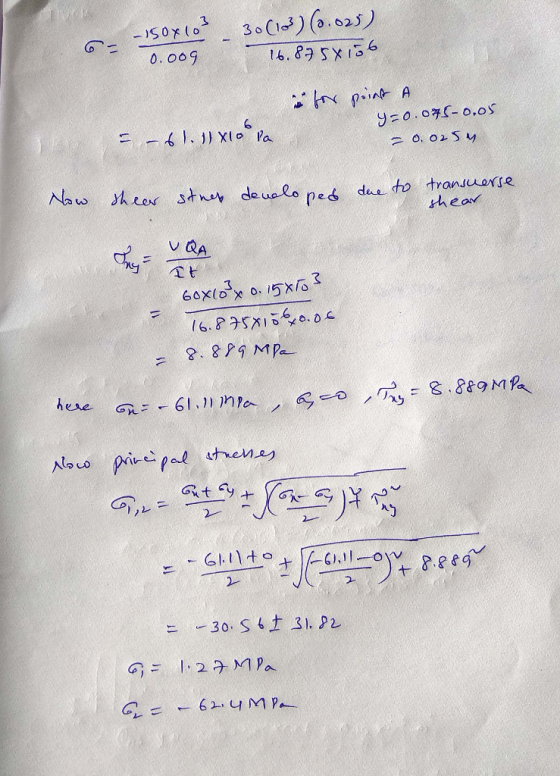 σ = -150×10³/0.009 - 30(10³)(0.025)/16.875×10⁻⁶
∵ for point A
y=0.075-0.05
= 0.025 m
= -61.11×10⁶ Pa
Now shear stress developed due to transverse shear
τxy = VQA/It
= 60×10³×0.15×10⁻³/16.875×10⁻⁶×0.06
= 8.889 MPa
here σx = -61.11 MPa, σy=0, τxy = 8.889 MPa
Now principal stresses
σ1,2 = σx+σy/2 ± √(σx-σy/2)²+τxy²
= -61.11+0/2 ± √(-61.11-0/2)²+8.889²
= -30.56 ± 31.82
σ1 = 1.27 MPa
σ2 = -62.4 MPa